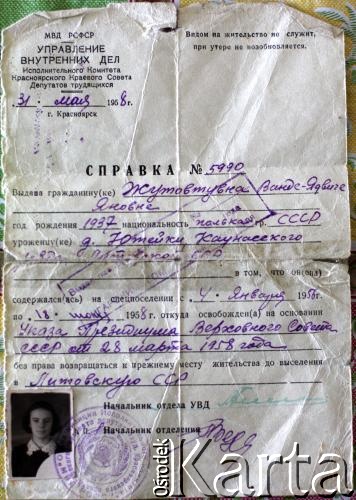 МВД РСФСР
УПРАВЛЕНИЕ
ВНУТРЕННИХ ДЕЛ
Исполнительного Комитета
Красноярского Краевого Совета
Депутатов трудящихся
„31“ мая 1958 г.
г. Красноярск
Видом на жительство не служит,
при утере не возобновляется.
СПРАВКА № 5990
Выдана гражданину(ке) Жутовтувна Ванде-Ядвиге
Яновне
год рождения 1937 национальность полька гр. СССР
уроженцу(ке) д. Каунасского
в том, что он(она)
содержался(ась) на спецпоселении с 4 Января
по 18 1958 г. откуда освобожден(а) на основании
Указа Президиума Верховного Совета
СССР от 28 марта 1958 года
без права возвращаться к прежнему месту жительства до выселения
в Литовскую ССР
Начальник отдела УВД
Начальник отделения
Ośrodek
Karta